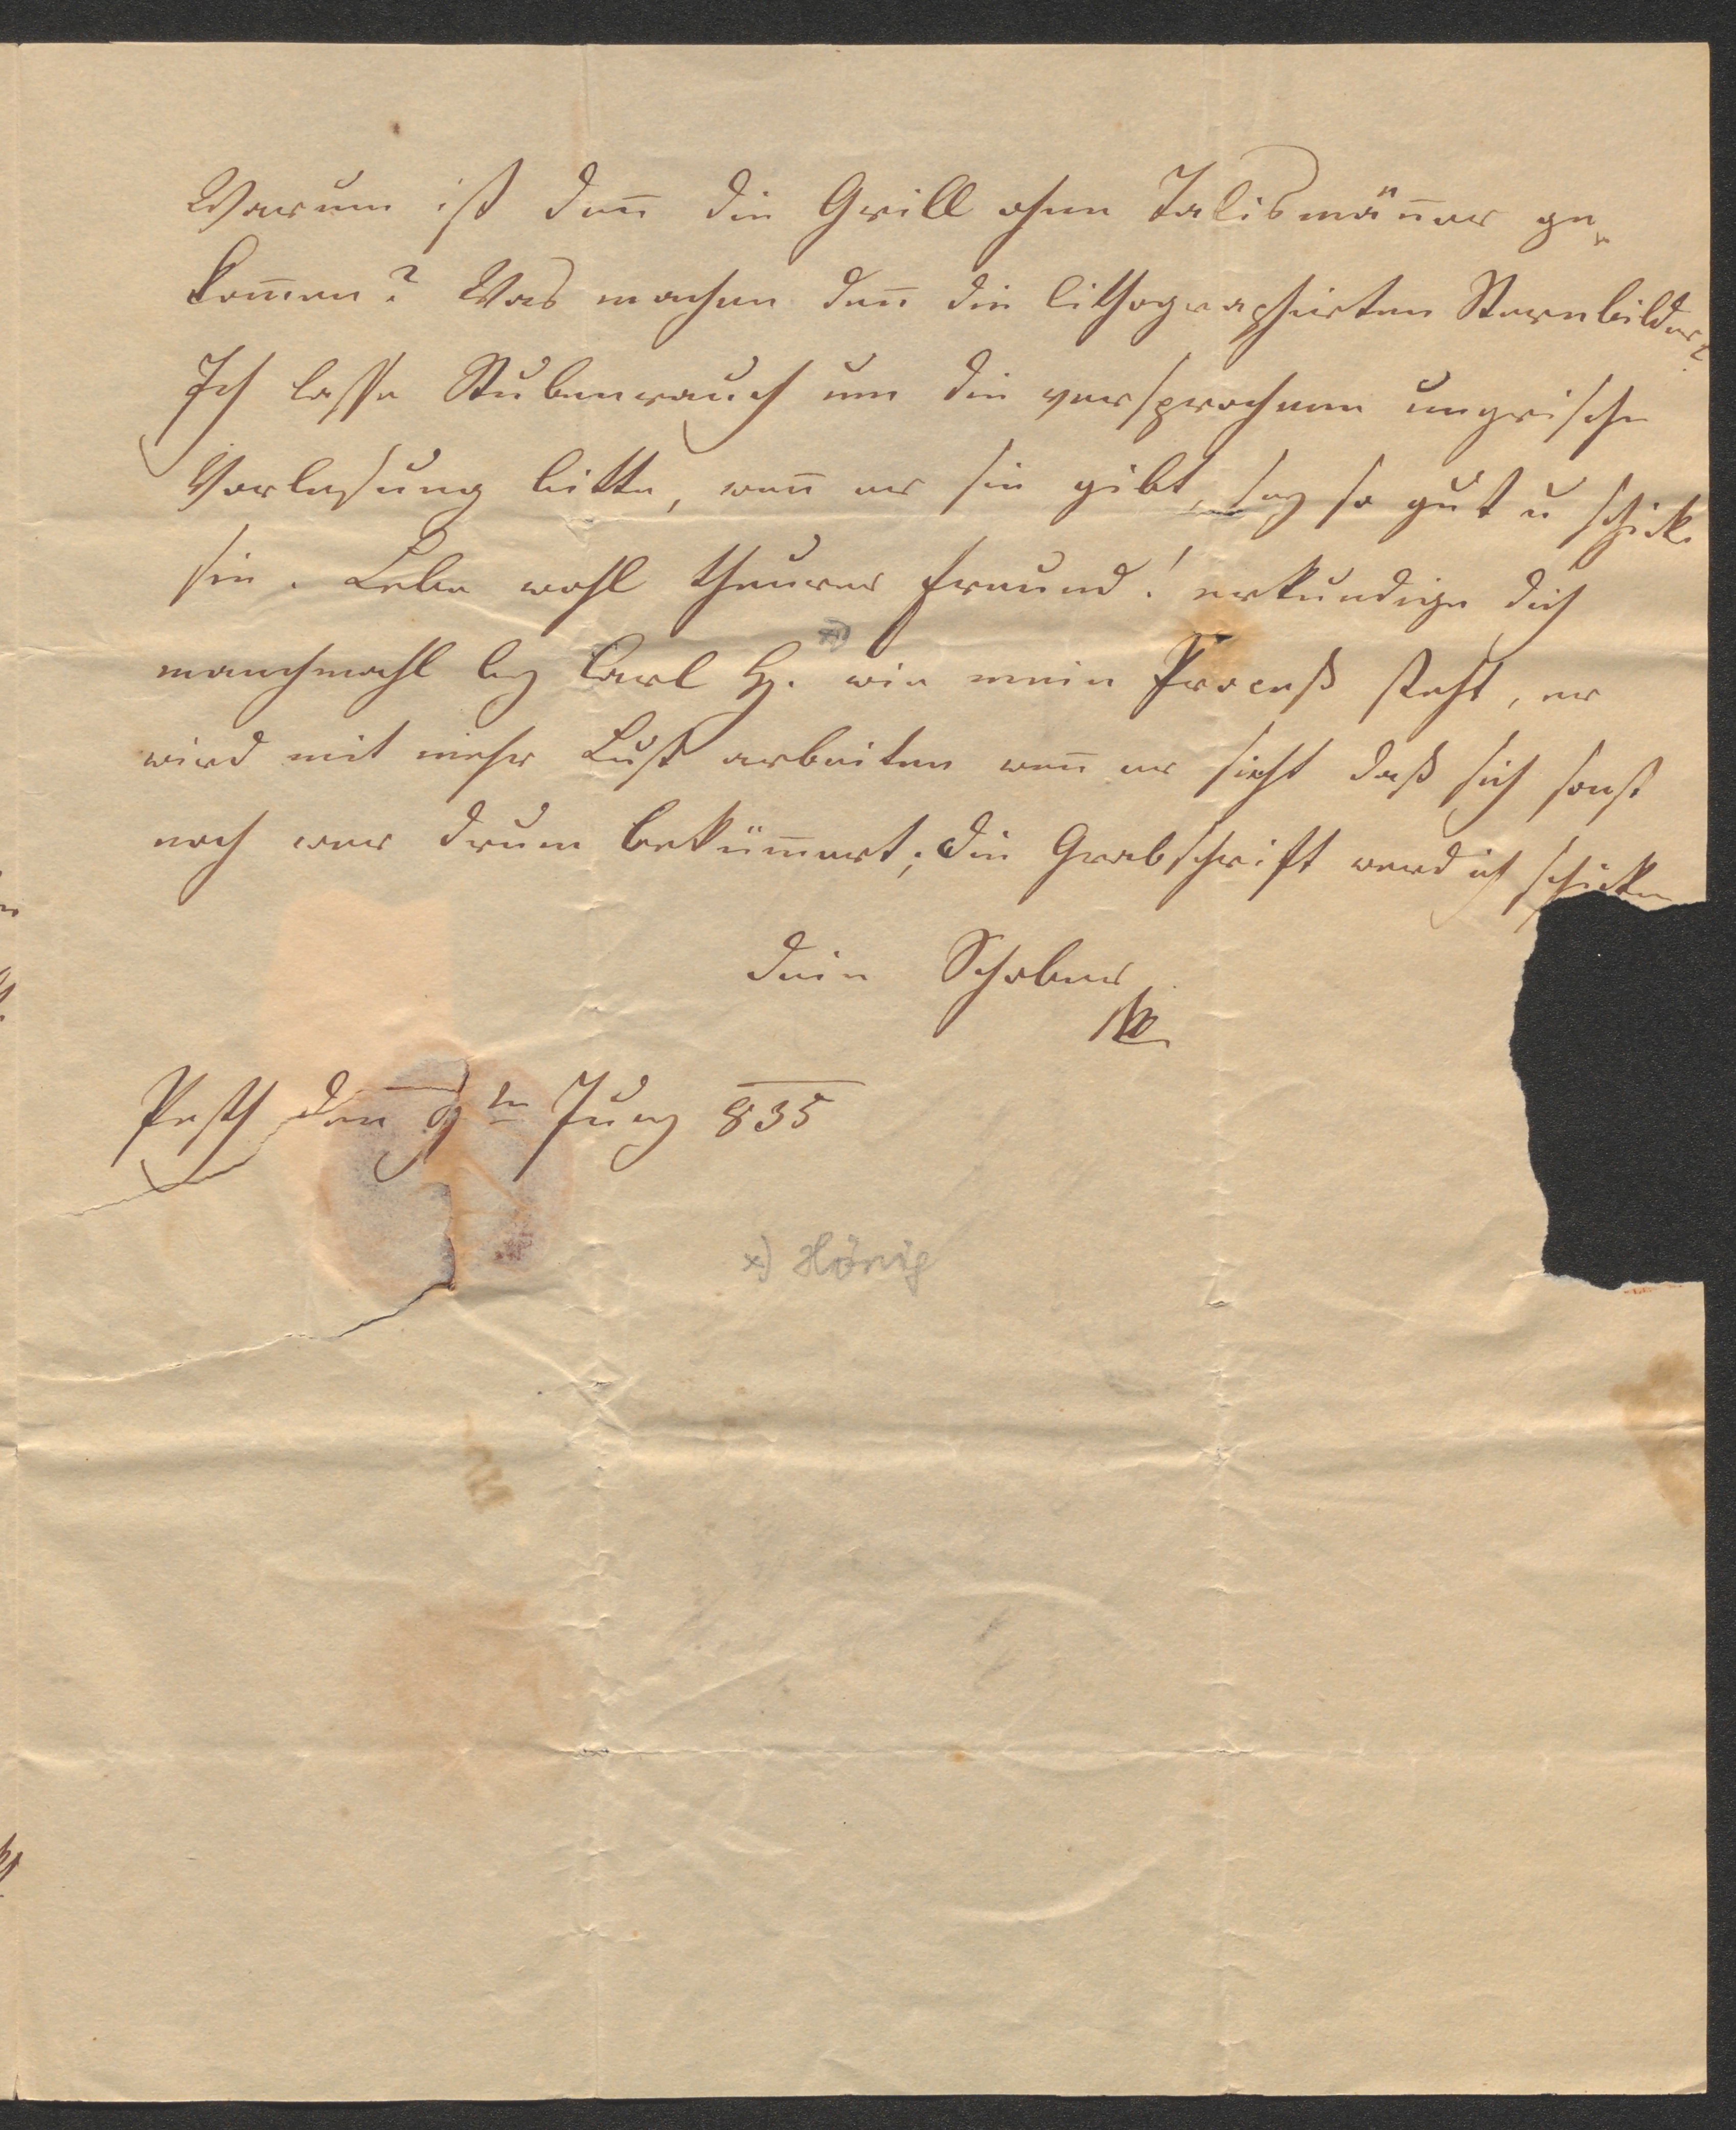 Warum ist den̅ die Grill ohne Talismän̅er ge-
kom̅en? Was machen den̅ die lithographirten Sternbilder?
Ich lasse Stubenrauch um die versprochene ungrische
Vorlesung bitte, wen̅ er sie gibt, sey so gut u schick
sie. Lebe wohl theurer Freund! erkundige dich
manchmahl bey Carl H. x) wie mein Proceß steht, er
wird mit mehr Lust arbeiten wen̅ er sieht daß sich sonst
noch wer drum beküm̅ert; die Grabschrift werd ich schicken
dein Schober
Pesth den 9tn Juny 835
x) Hönig